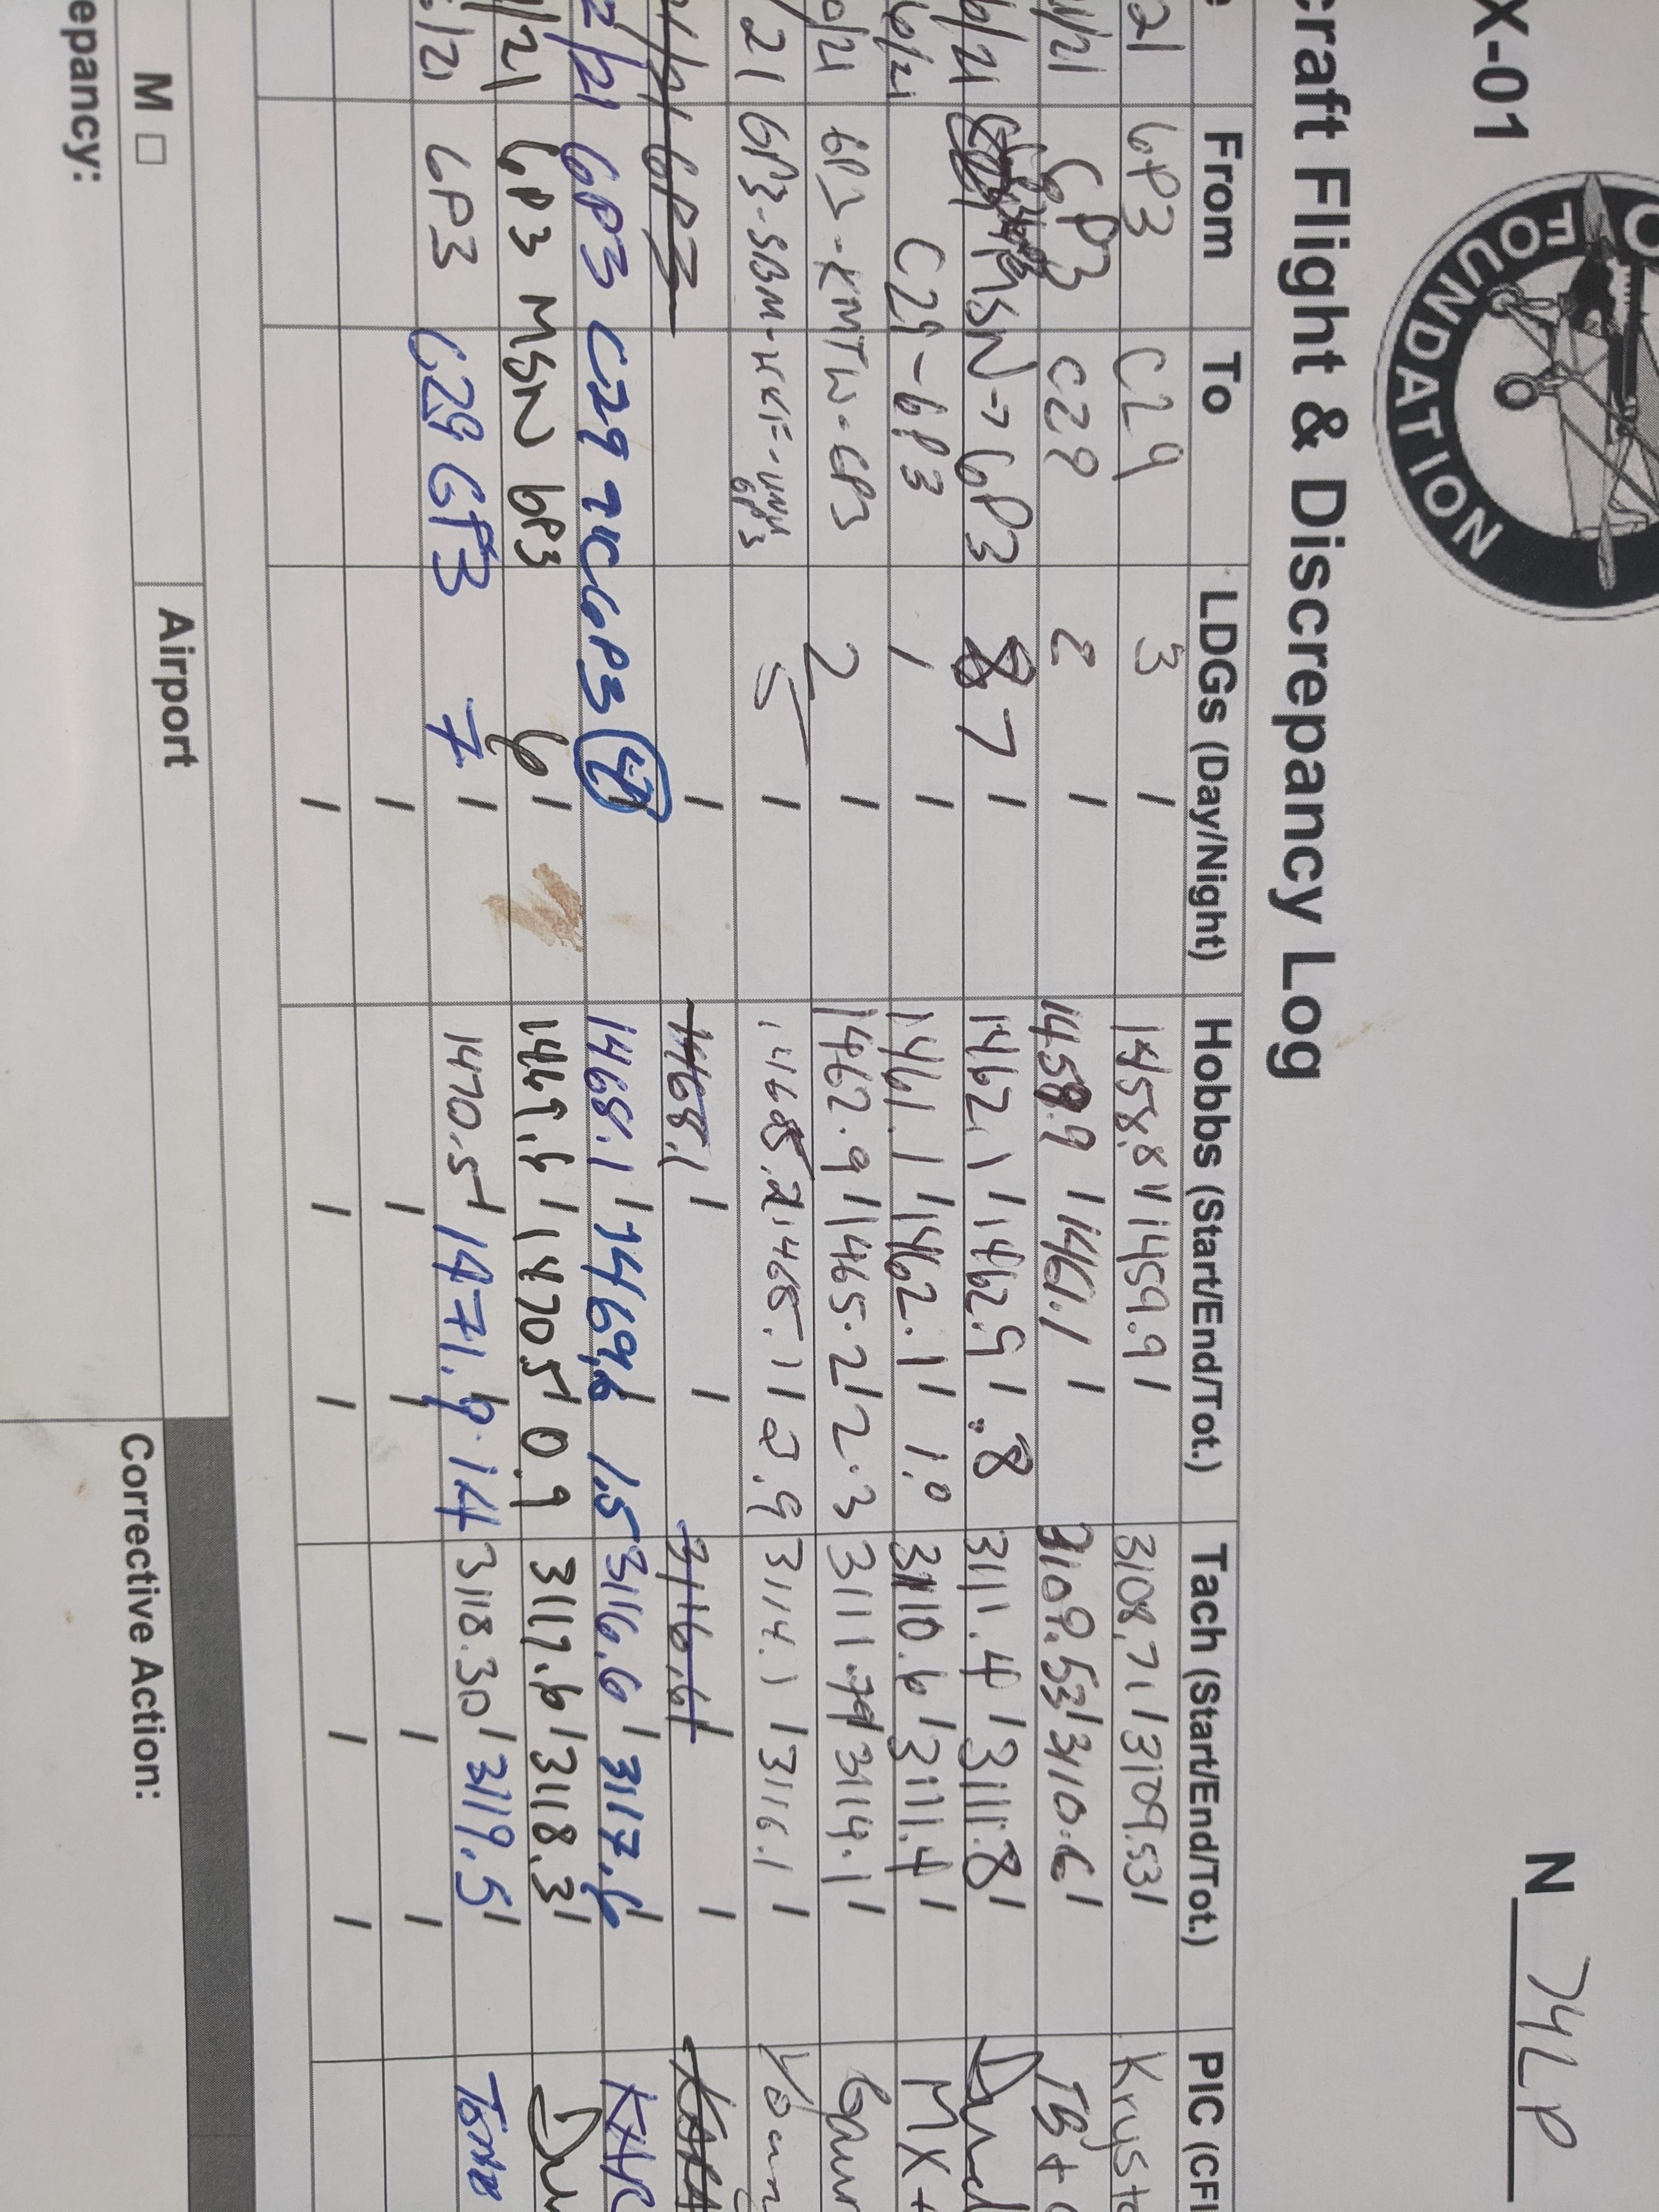 X-01
FOUNDATION
N 74LP
craft Flight & Discrepancy Log
From To LDGs (Day/Night) Hobbs (Start/End/Tot.) Tach (Start/End/Tot.) PIC (CFI
21 6P3 C29 3 / 1458.8 / 1459.9 / 3108.71 / 3109.53 /
/21 6P3 C29 2 / 1459.9 / 1461.1 / 3109.53 / 3110.6 /
/21 MSN → 6P3 7 / 1462.1 / 1462.9 / .8 3111.4 / 3111.8 /
/21 C29 - 6P3 1 / 1461.1 / 1462.1 / 1.0 3110.6 / 3111.4 / MX +
/21 6P3 - KMTW - 6P3 2 / 1462.9 / 1465.2 / 2.3 3111.79 / 3114.1 /
21 6P3 - SBM - 6P3 5 / 1465.2 / 1468.1 / 2.9 3114.1 / 3116.1 /
/21 6P3 / 1468.1 / / 3116.6 / /
/21 6P3 C29 7C 6P3 / 1468.1 / 1469.6 1.5 3116.6 / 3117.6 /
/21 6P3 MSN 6P3 6 / 1469.6 / 1470.5 / 0.9 3117.6 / 3118.3 /
/21 6P3 C29 6P3 7 / 1470.5 / 1471.9 1.4 3118.30 / 3119.5 /
/ / / / /
/ / / / /
M □ Airport
epancy: Corrective Action: